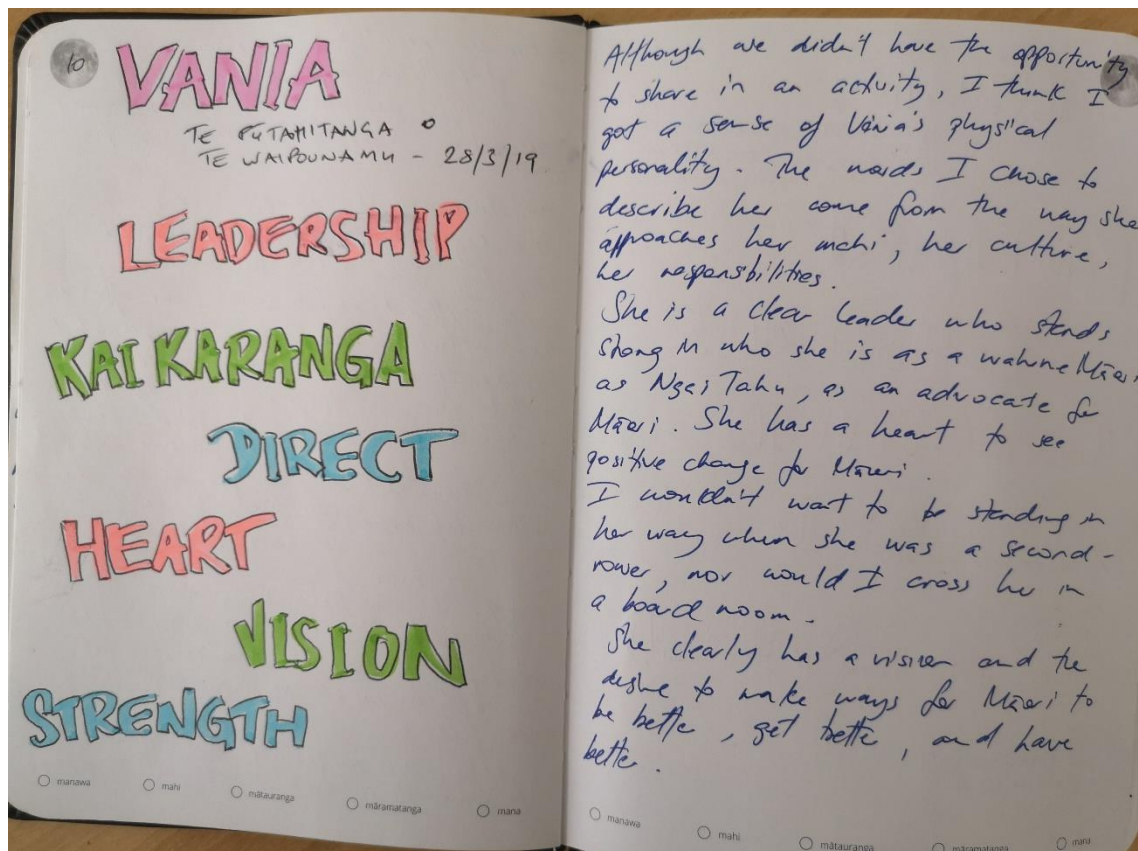 10
VANIA
TE PŪTAHITANGA O
TE WAIPOUNAMU - 28/3/19
LEADERSHIP
KAI KARANGA
DIRECT
HEART
VISION
STRENGTH
manawa
mahi
mātauranga
māramatanga
mana
Although we didn't have the opportunity
to share in an activity, I think I
got a sense of Vania's physical
personality. The words I chose to
describe her come from the way she
approaches her mahi, her culture,
her responsibilities.
She is a clear leader who stands
strong in who she is as a wahine Māori
as Ngai Tahu, as an advocate for
Māori. She has a heart to see
positive change for Māori.
I wouldn't want to be standing in
her way when she was a second-
rower, nor would I cross her in
a board room.
She clearly has a vision and the
desire to make ways for Māori to
be better, get better, and have
better.
manawa
mahi
mātauranga
māramatanga
mana